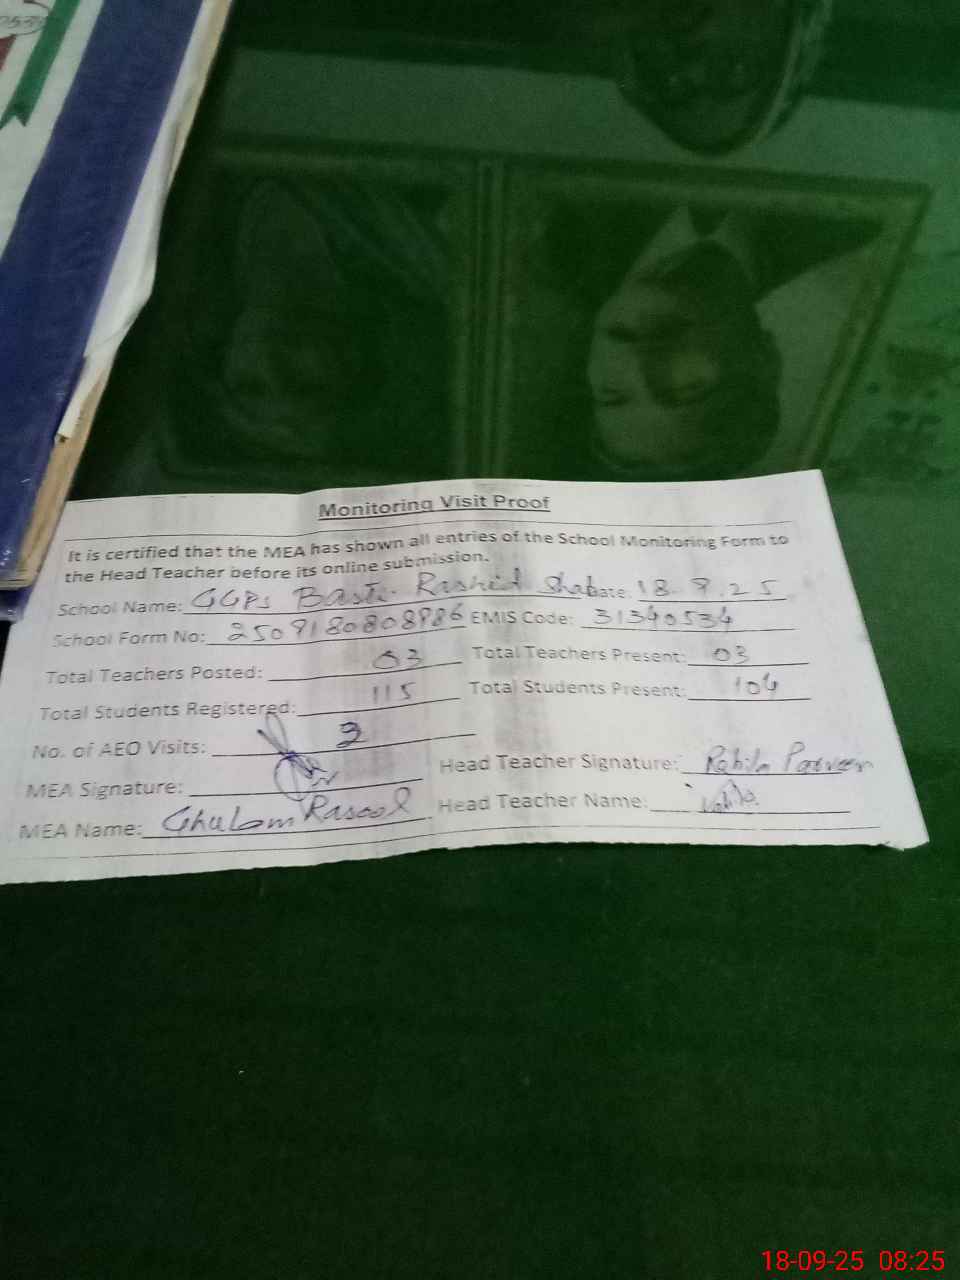 Monitoring Visit Proof
It is certified that the MEA has shown all entries of the School Monitoring Form to
the Head Teacher before its online submission.
School Name: GGPS Basti Rashid Shah Date: 18.9.25
School Form No: 2509180808986 EMIS Code: 31340534
Total Teachers Posted: 03 Total Teachers Present: 03
Total Students Registered: 115 Total Students Present: 104
No. of AEO Visits: 3
MEA Signature: Head Teacher Signature: Rahila Parveen
MEA Name: Ghulam Rasool Head Teacher Name:
18-09-25 08:25